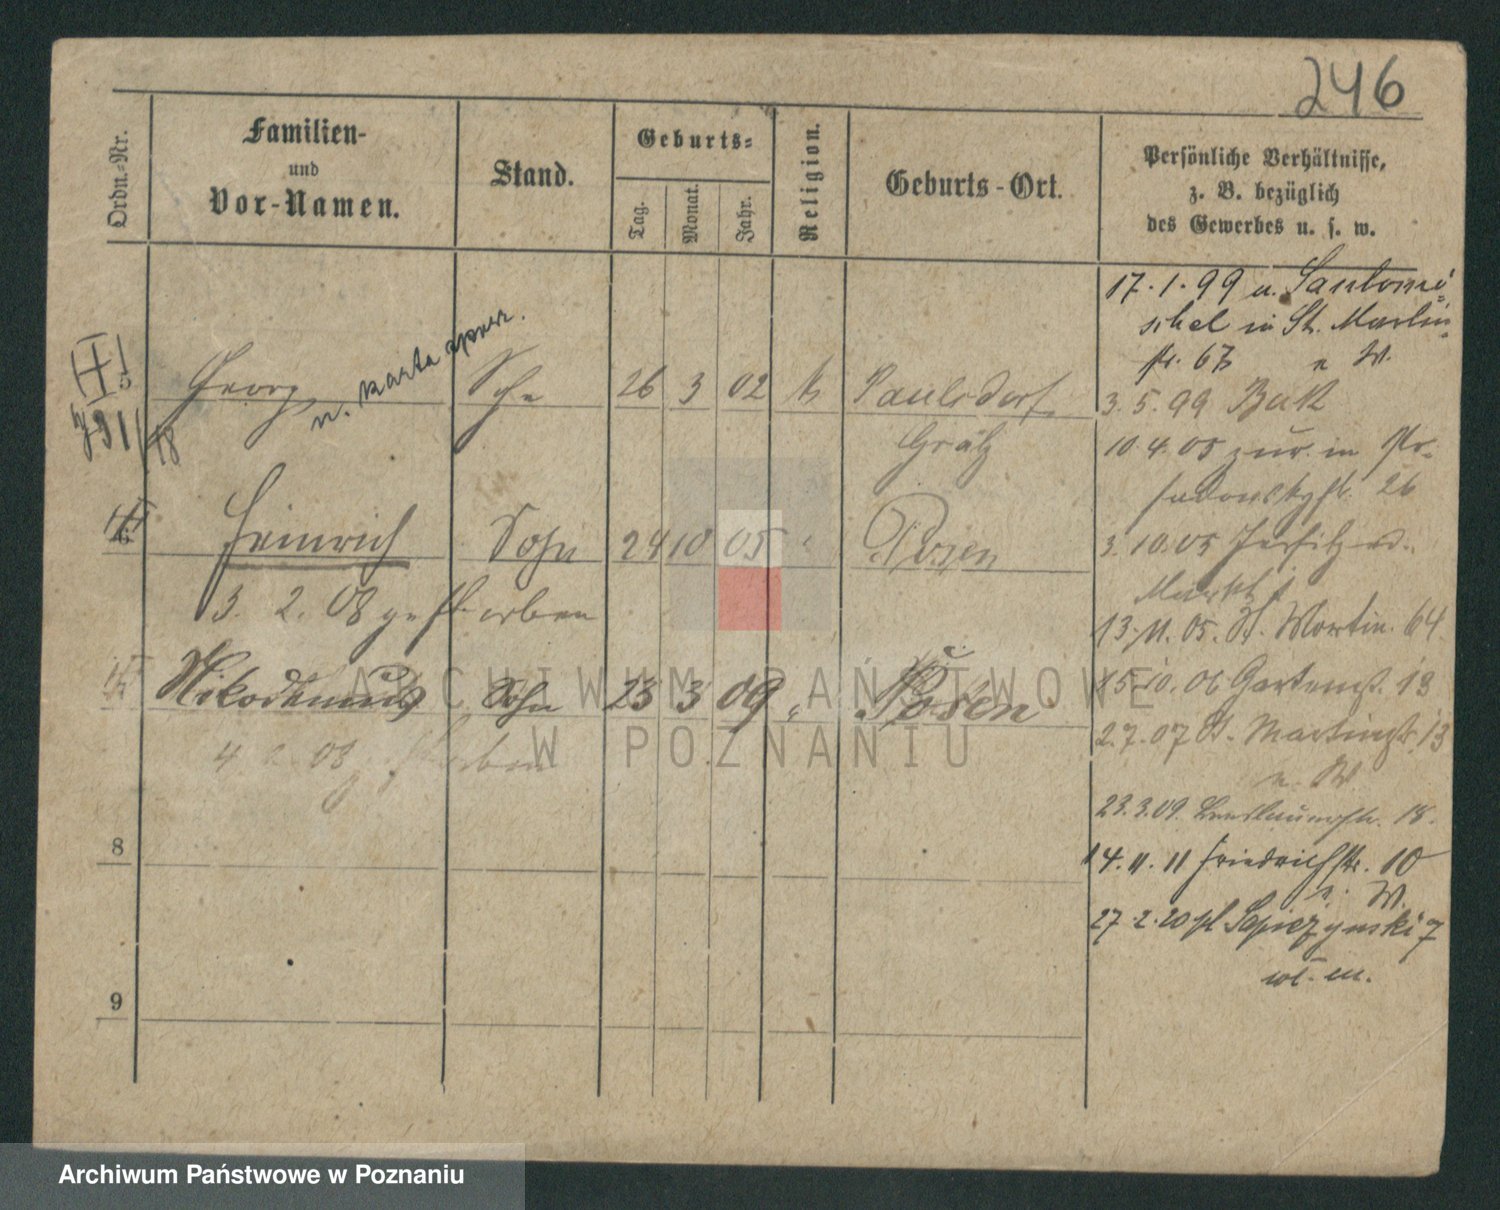 246
Ordn.-Nr.
Familien-
und
Vor-Namen.
Stand.
Geburts-
Tag.
Monat.
Jahr.
Religion.
Geburts-Ort.
Persönliche Verhältnisse,
z. B. bezüglich
des Gewerbes u. s. w.
17.1.99 u. Santomi-
schel in St. Martin-
str. 67 n W.
Georg n. karta Sohn 26 3 02 k Paulsdorf
Grätz
3.5.99 Buk
10.4.05 zur. in
26
Heinrich Sohn 24 10 05 Posen
3.10.05
Markt
3. 2. 08 gestorben
13.11.05. St. Martin. 64
Nikodemus Sohn 23 3 09 " Posen
15.10.06 Gartenst. 19
2.7.07 St. Martinstr. 13
n. W
4 2 08 gestorben
23.3.09. 18.
8
14.11.11 Friedrichstr. 10
n. W.
27.2.20 pl Sapiezynski 7
9
ARCHIWUM PAŃSTWOWE
W POZNANIU
Archiwum Państwowe w Poznaniu